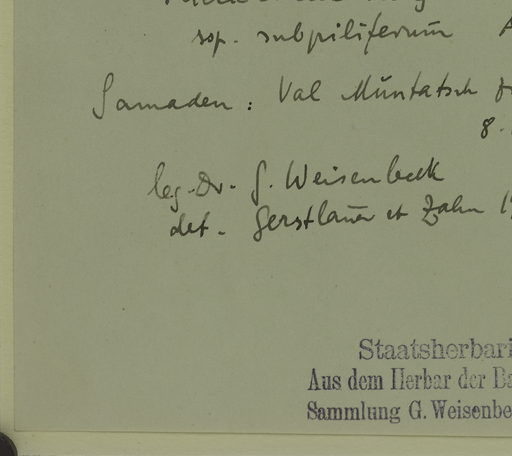 ssp. subpiliferum A
Samaden: Val Müntatsch
8.
leg. Dr. G. Weisenbeck
det. Gerstlauer et Zahn 1
Staatsherbari
Aus dem Herbar der Ba
Sammlung G. Weisenbe